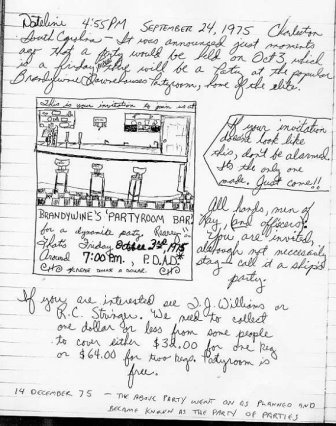 Dateline 4:55PM September 24, 1975 Charleston
South Carolina - It was announced just moments
ago that a party would be held on Oct 3, which
is a friday. There will be a party at the popular
Brandywine Townehouses Partyroom, home of the elite.
This is your invitation to join us at
BRANDYWINE'S PARTYROOM BAR
for a dynamite party.
Thats Friday October 3rd 1975
Around 7:00 PM, P.D.A.D.*
If your invitation
doesnt look like
this, dont be alarmed
Its the only one
made. Just come!!
All hands, men of
Key, (and officers)
you are invited,
although not necessarily
stag - call it a ship's
party
If you are interested see T.J. Williams or
R.C. Stringer. We need to collect
one dollar or less from some people
to cover either $32.00 for one keg
or $64.00 for two kegs. Partyroom is
free.
14 DECEMBER 75 - THE ABOVE PARTY WENT ON AS PLANNED AND
BECAME KNOWN AS THE PARTY OF PARTIES